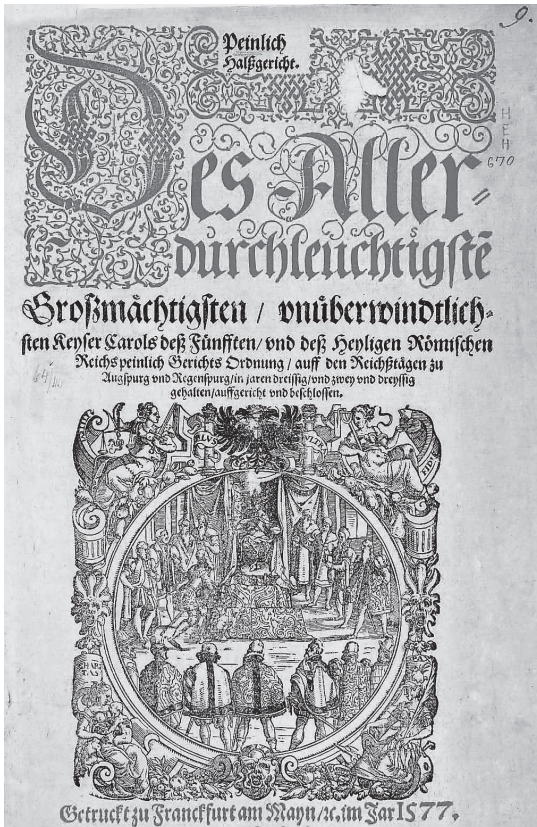 9.
Peinlich
Halßgericht.
H
E
H
670
Des Aller-
durchleuchtigstē
Großmächtigsten / vnüberwindtlich-
sten Keyser Carols deß Fünfften / vnd deß Heyligen Römischen
Reichs peinlich Gerichts Ordnung / auff den Reichßtägen zu
Augspurg vnd Regenspurg / in jaren dreissig / vnd zwey vnd dreyssig
gehalten / auffgericht vnd beschlossen.
PLVS VLTRE
Getruckt zu Franckfurt am Mayn / ꝛc. im Jar 1577.